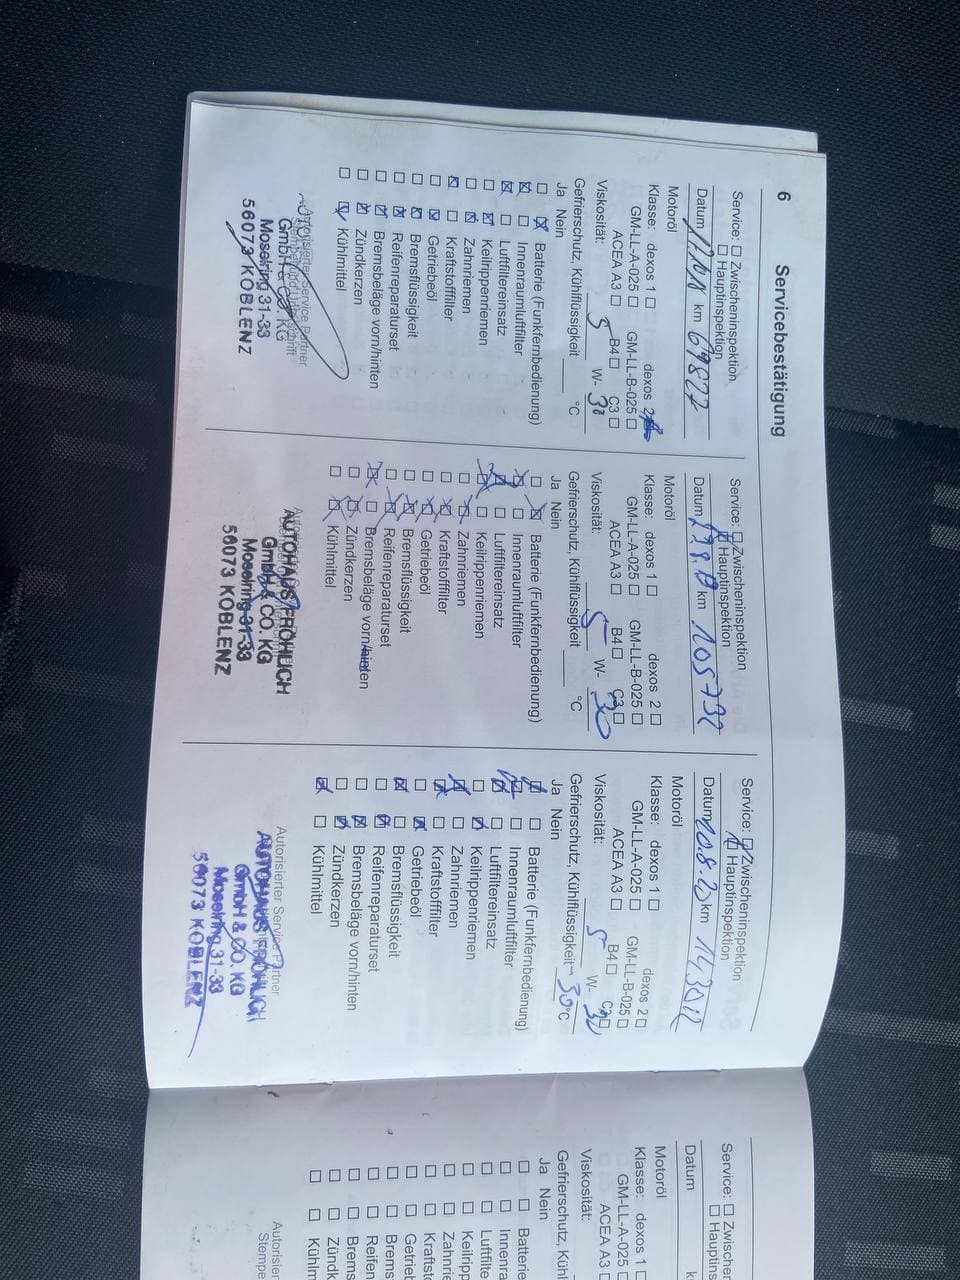 6 Servicebestätigung
Service: Zwischeninspektion
Hauptinspektion
Datum km 69822
Motoröl
Klasse: dexos 1 dexos 2
GM-LL-A-025 GM-LL-B-025
ACEA A3 B4 C3
Viskosität: 5 W- 30
Gefrierschutz, Kühlflüssigkeit °C
Ja Nein
Batterie (Funkfernbedienung)
Innenraumluftfilter
Luftfiltereinsatz
Keilrippenriemen
Zahnriemen
Kraftstofffilter
Getriebeöl
Bremsflüssigkeit
Reifenreparaturset
Bremsbeläge vorn/hinten
Zündkerzen
Kühlmittel
Autorisierter Service Partner
GmbH & CO. KG
Moselring 31-33
56073 KOBLENZ
Service: Zwischeninspektion
Hauptinspektion
Datum km 105732
Motoröl
Klasse: dexos 1 dexos 2
GM-LL-A-025 GM-LL-B-025
ACEA A3 B4 C3
Viskosität: 5 W- 30
Gefrierschutz, Kühlflüssigkeit °C
Ja Nein
Batterie (Funkfernbedienung)
Innenraumluftfilter
Luftfiltereinsatz
Keilrippenriemen
Zahnriemen
Kraftstofffilter
Getriebeöl
Bremsflüssigkeit
Reifenreparaturset
Bremsbeläge vorn/hinten
Zündkerzen
Kühlmittel
AUTOHAUS FRÖHLICH
GmbH & CO. KG
Moselring 31-33
56073 KOBLENZ
Service: Zwischeninspektion
Hauptinspektion
Datum km 143012
Motoröl
Klasse: dexos 1 dexos 2
GM-LL-A-025 GM-LL-B-025
ACEA A3 B4 C3
Viskosität: 5 W- 30
Gefrierschutz, Kühlflüssigkeit -30 °C
Ja Nein
Batterie (Funkfernbedienung)
Innenraumluftfilter
Luftfiltereinsatz
Keilrippenriemen
Zahnriemen
Kraftstofffilter
Getriebeöl
Bremsflüssigkeit
Reifenreparaturset
Bremsbeläge vorn/hinten
Zündkerzen
Kühlmittel
Autorisierter Service Partner
AUTOHAUS FRÖHLICH
GmbH & CO. KG
Moselring 31-33
56073 KOBLENZ
Service: Zwischeninsp
Hauptins
Datum k
Motoröl
Klasse: dexos 1
GM-LL-A-025
ACEA A3
Viskosität:
Gefrierschutz, Kühl
Ja Nein
Batterie
Innenra
Luftfilte
Keilripp
Zahnri
Kraftst
Getrieb
Brems
Reifen
Brems
Zündk
Kühlm
Autorisier
Stempe